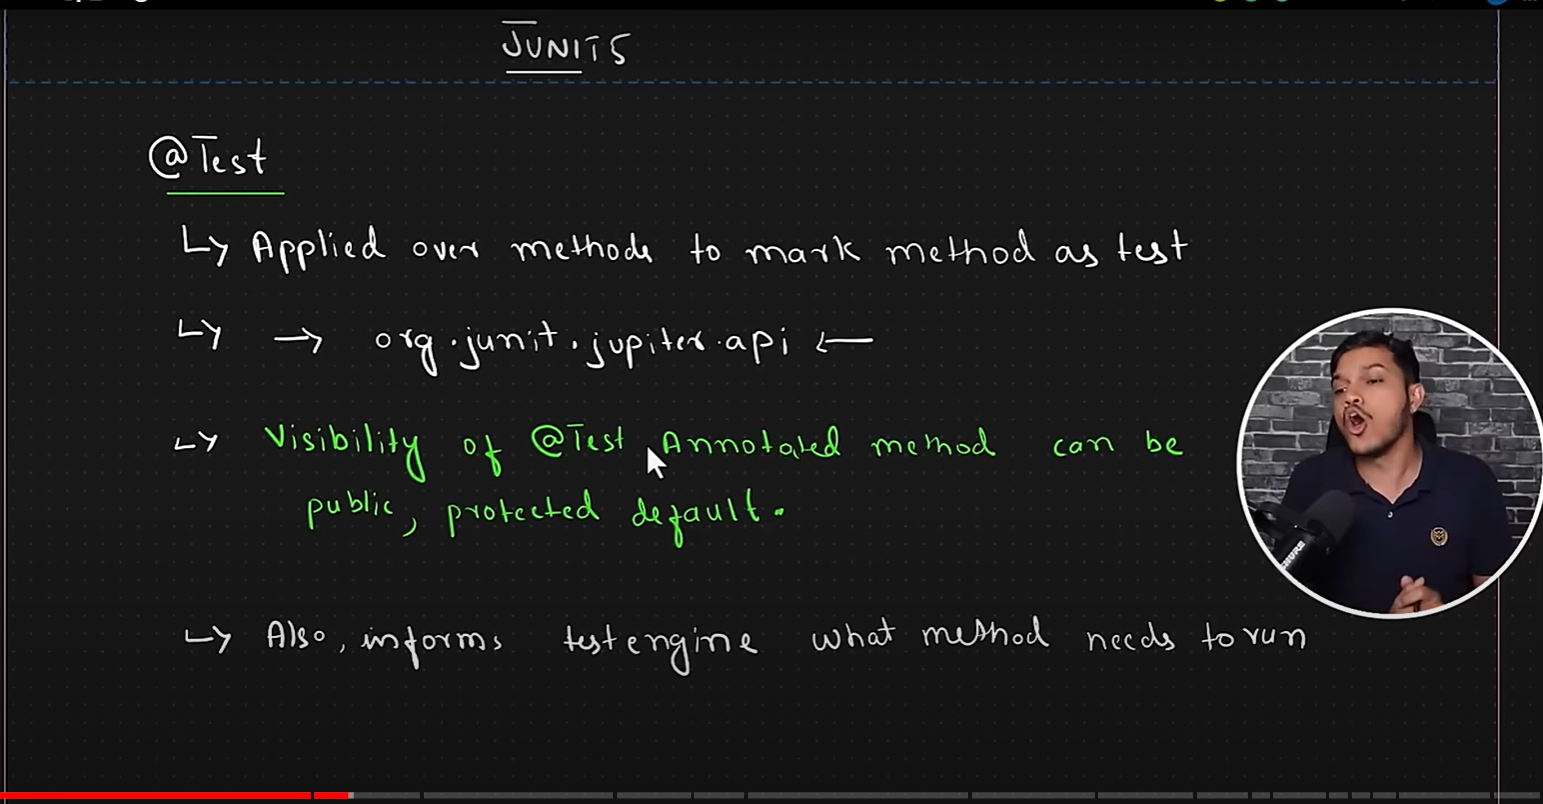 JUNIT5
@Test
↳ Applied over methods to mark method as test
↳ → org.junit.jupiter.api ←
↳ Visibility of @Test Annotated method can be
public, protected default.
↳ Also, informs test engine what method needs to run
SHURE